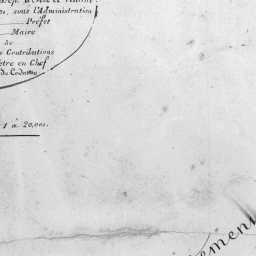 sous l'Administration
Préfet
Maire
de
Contributions
ètre en Chef
du Cadastre
1 à 20,000.
ement